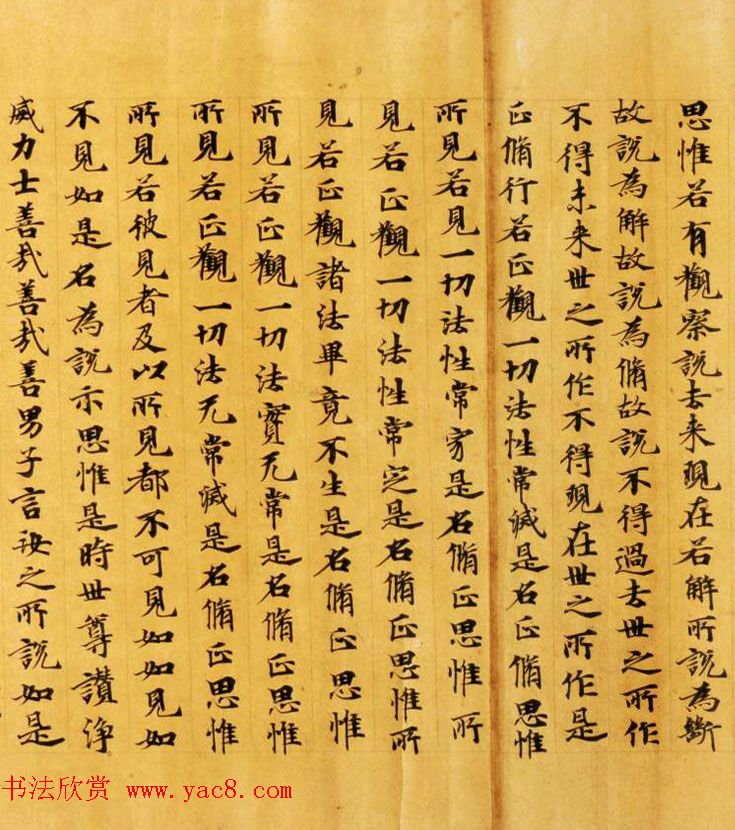 思惟若有觀察說去来現在若解所說為斷
故說為解故說為脩故說不得過去世之所作
不得未来世之所作不得現在世之所作是
正脩行若正觀一切法性常滅是名正脩思惟
所見若見一切法性常寂是名脩正思惟所
見若正觀一切法性常定是名脩正思惟所
見若正觀諸法畢竟不生是名脩正思惟
所見若正觀一切法寶无常是名脩正思惟
所見若正觀一切法无常滅是名脩正思惟
所見若彼見者及以所見都不可見如如見如
不見如是名為說示思惟是時世尊讚淨
威力士善哉善哉善男子言汝之所說如是
书法欣赏 www.yac8.com